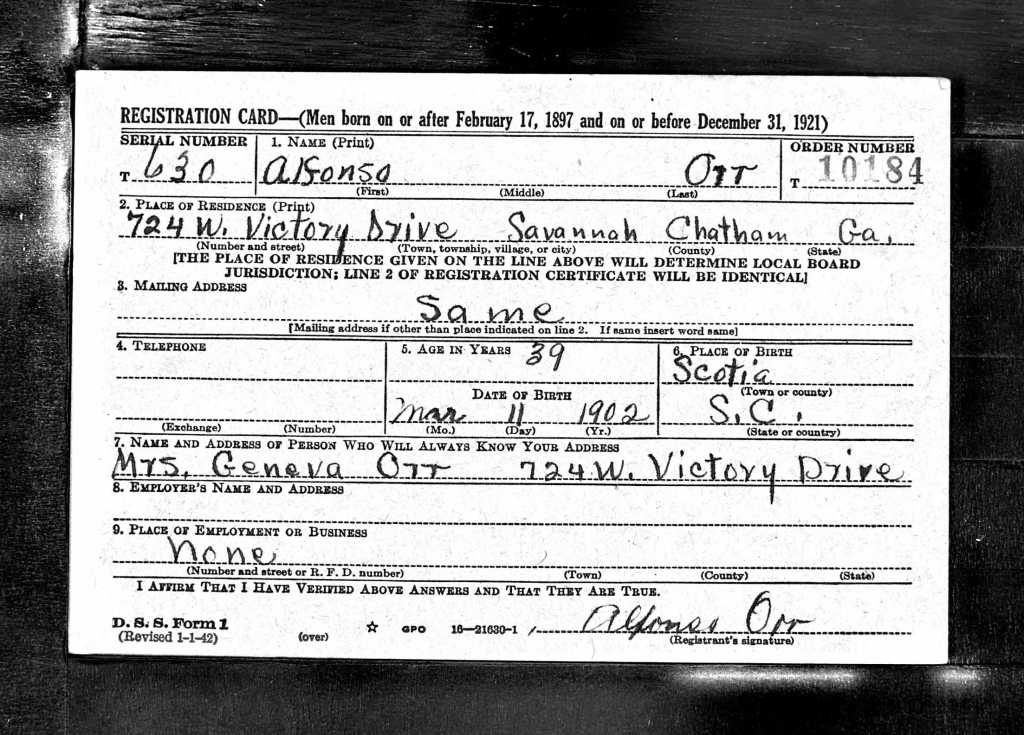 REGISTRATION CARD—(Men born on or after February 17, 1897 and on or before December 31, 1921)
SERIAL NUMBER 1. NAME (Print) ORDER NUMBER
T 630 Alfonso Orr T 10184
(First) (Middle) (Last)
2. PLACE OF RESIDENCE (Print)
724 W. Victory Drive Savannah Chatham Ga.
(Number and street) (Town, township, village, or city) (County) (State)
[THE PLACE OF RESIDENCE GIVEN ON THE LINE ABOVE WILL DETERMINE LOCAL BOARD
JURISDICTION; LINE 2 OF REGISTRATION CERTIFICATE WILL BE IDENTICAL]
3. MAILING ADDRESS
Same
[Mailing address if other than place indicated on line 2. If same insert word same]
4. TELEPHONE 5. AGE IN YEARS 39 6. PLACE OF BIRTH
Scotia
DATE OF BIRTH (Town or county)
Mar 11 1902 S.C.
(Exchange) (Number) (Mo.) (Day) (Yr.) (State or country)
7. NAME AND ADDRESS OF PERSON WHO WILL ALWAYS KNOW YOUR ADDRESS
Mrs. Geneva Orr 724 W. Victory Drive
8. EMPLOYER'S NAME AND ADDRESS
9. PLACE OF EMPLOYMENT OR BUSINESS
None
(Number and street or R. F. D. number) (Town) (County) (State)
I AFFIRM THAT I HAVE VERIFIED ABOVE ANSWERS AND THAT THEY ARE TRUE.
D. S. S. Form 1 Alfonso Orr
(Revised 1-1-42) (over) ☆ GPO 16—21630-1 (Registrant's signature)